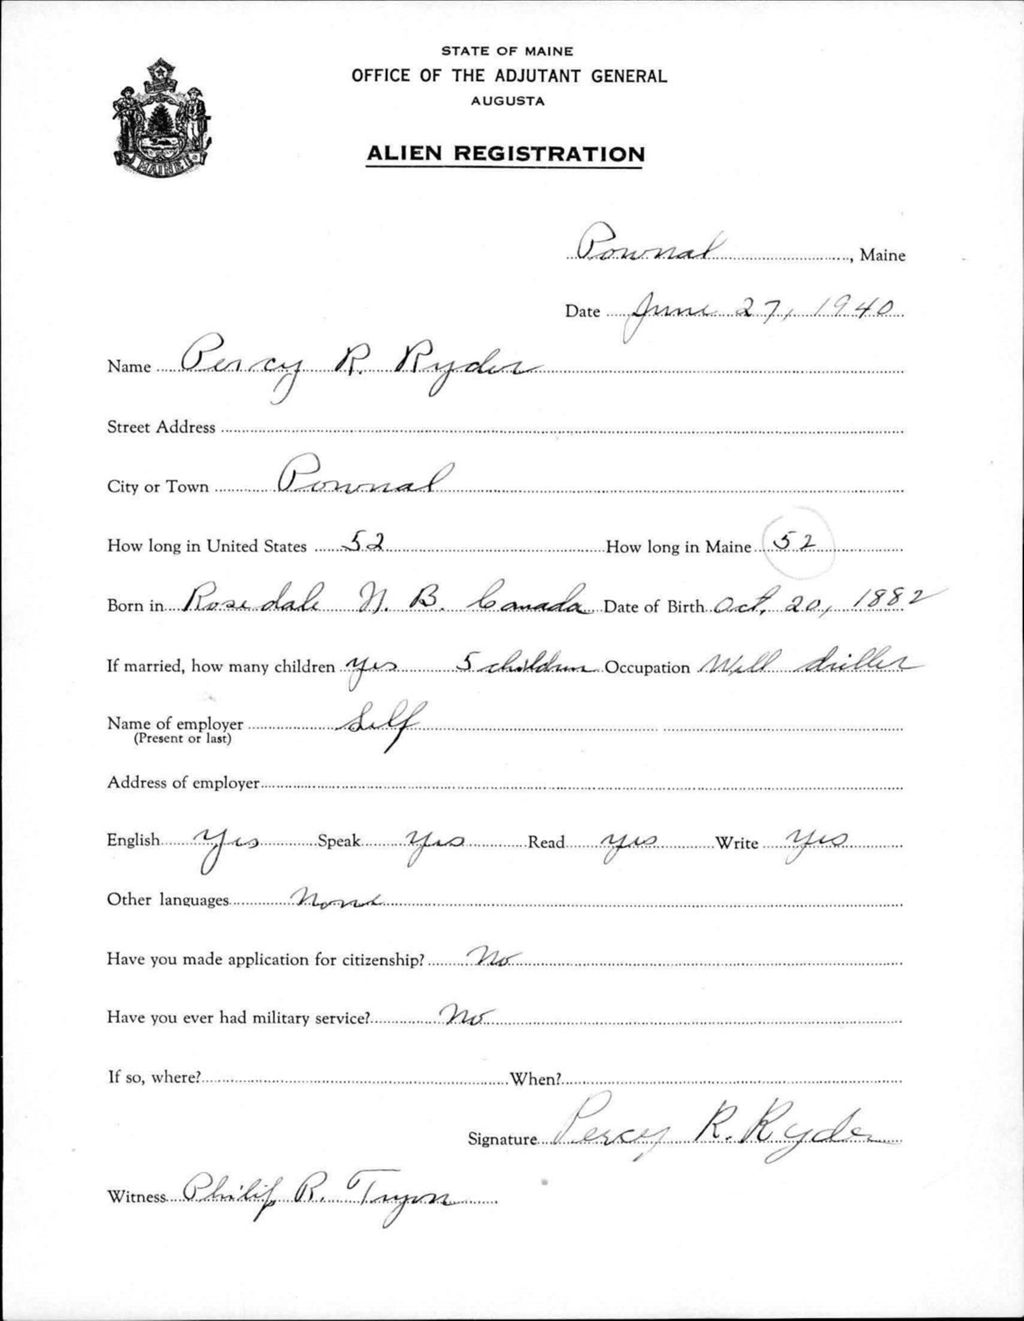 STATE OF MAINE
OFFICE OF THE ADJUTANT GENERAL
AUGUSTA
ALIEN REGISTRATION
MAINE
Pownal, Maine
Date June 27, 1940
Name Percy R. Ryder
Street Address
City or Town Pownal
How long in United States 52 How long in Maine 52
Born in Rosedale N. B. Canada Date of Birth Oct. 20, 1882
If married, how many children yes 5 children Occupation Well driller
Name of employer Self
(Present or last)
Address of employer
English Yes Speak Yes Read yes Write Yes
Other languages None
Have you made application for citizenship? No
Have you ever had military service? No
If so, where? When?
Signature Percy R. Ryder
Witness Philip R. Tryon